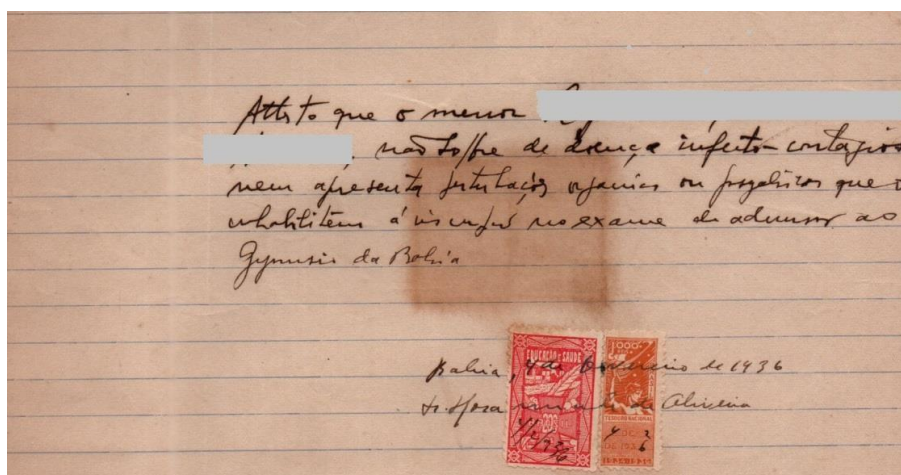 Attesto que o menor
não soffre de doença infecto-contagios
nem apresenta perturbações organicas ou psychicas que o
inhabilitem á inscripção no exame de admissão ao
Gymnasio da Bahia
Bahia, 4 de Fevereiro de 1936
de Oliveira
EDUCAÇÃO E SAUDE
200
4/2/936
1000
THESOURO NACIONAL
4 2
DE 193 6